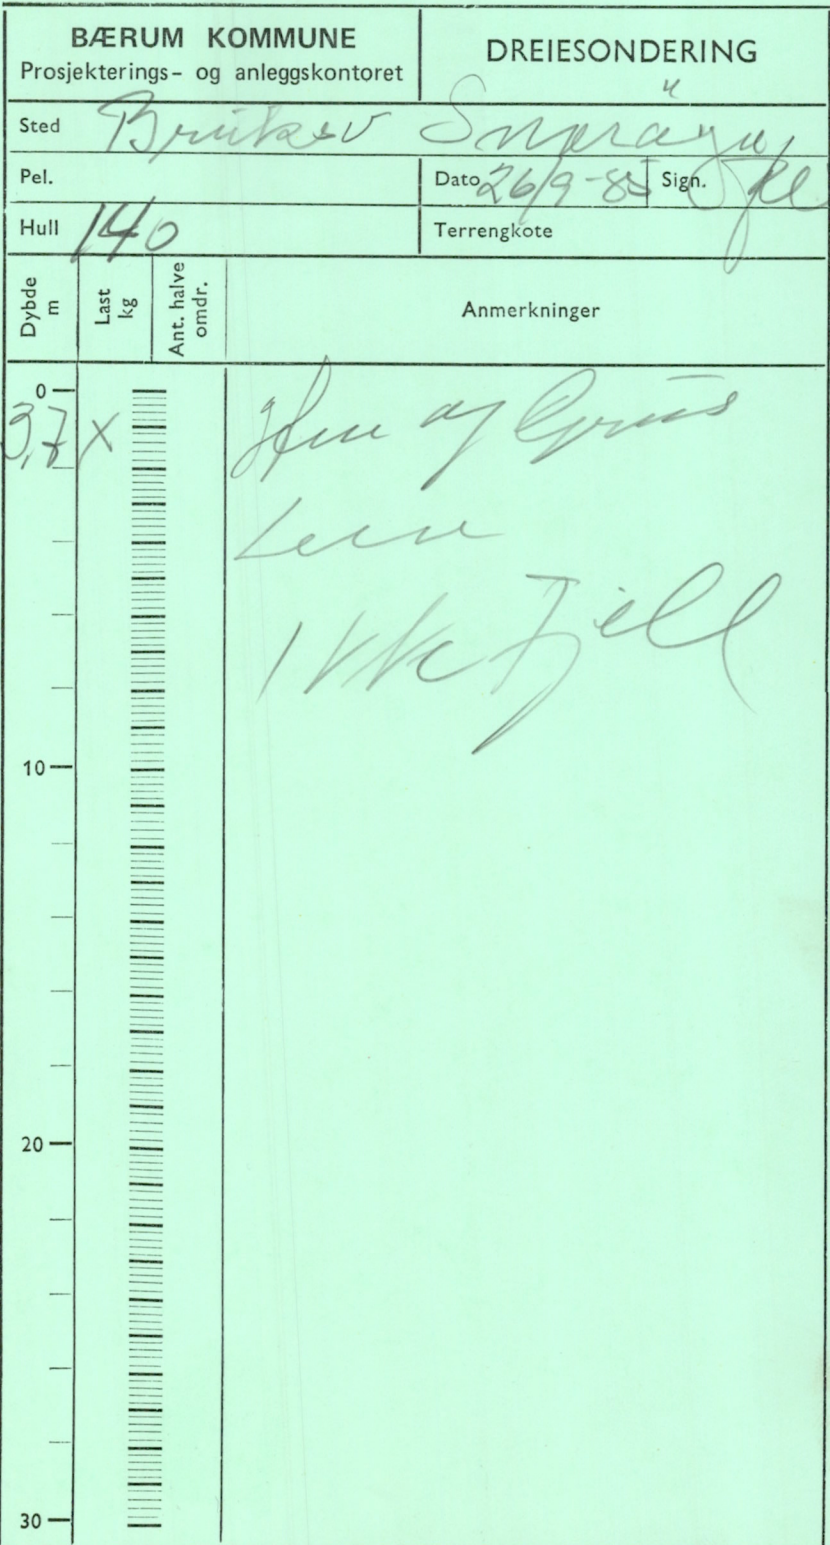 BÆRUM KOMMUNE
Prosjekterings- og anleggskontoret
DREIESONDERING
Sted
Pel.
Dato 26/9-85 Sign.
Hull 140
Terrengkote
Dybde m
Last kg
Ant. halve omdr.
Anmerkninger
0
3,7 X
og Grus
Leire
Ikke Fjell
10
20
30